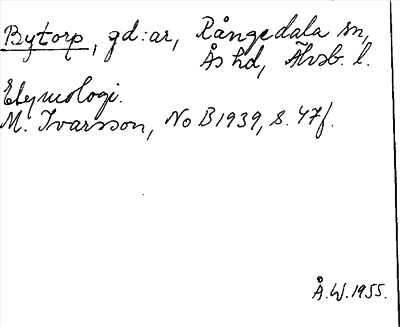 Bytorp, gd:ar, Rångedala sn,
Ås hd, Älvsb. l.
Etymologi.
M. Ivarsson, NoB 1939, s. 47f.
Å.W. 1955.